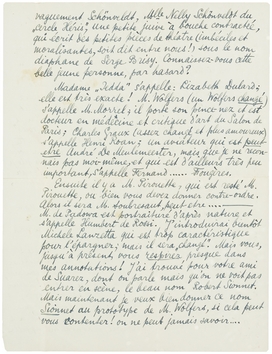 vaguement Schönveldt, Mlle Nelly Schönveldt du
cercle Kéric, une petite juive à bouche contrarié,
qui écrit des petites pièces de théâtre (imbéciles et
moralisantes, soit dit entre nous!) sous le nom
diaphane de Serge Brisy. Connaissez-vous cette
belle jeune personne, par hasard?
Madame "Jetta" s'appelle: Elizabeth Soutard;
elle est très exacte! M. Wolfers (un Wolfers changé)
s'appelle M. Morret, il pose son pince-nez et est
docteur en médecine et critique d'art du Salon de
Paris; Charles Graux (assez changé et plus amoureux)
s'appelle Henri Moran; un auditeur qui est peut
être André De Meulemeester, mais que je ne recon-
nais pas moi-même, et qui est d'ailleurs très peu
important, s'appelle Fernand...... Fougères.
Ensuite il y a M. Pirouette, qui est resté M.
Pirouette, ou bien vous devez donner contre-ordre.
Alors il sera M. Sombresaut, peut être.....
M. de Fedowa est portraituré d'après nature et
s'appelle Humbert de Rode. J'introduirai bientôt
Michele Lanzetta, qui est trop caractéristique
pour l'épargner; mais il sera changé. Mais vous,
jusqu'à présent, vous respirez presque dans
mes annotations! J'ai trouvé pour votre ami
de Suarez, dans le cas où qu'on ne voit pas
entrer en scène, le beau nom Robert Sionnet.
Mais maintenant je veux bien donner ce nom
Sionnet au prototype de M. Wolfers, si cela peut
vous contenter! on ne peut jamais savoir...